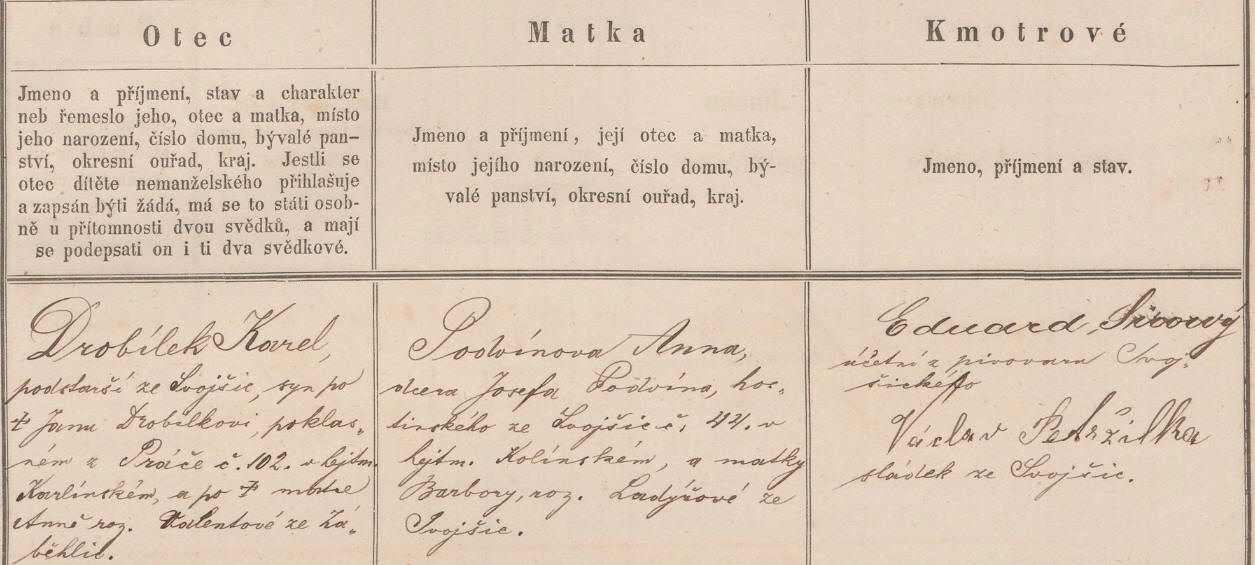 Otec
Jmeno a příjmení, stav a charakter
neb řemeslo jeho, otec a matka, místo
jeho narození, číslo domu, bývalé pan-
ství, okresní ouřad, kraj. Jestli se
otec dítěte nemanželského přihlašuje
a zapsán býti žádá, má se to státi osob-
ně u přítomnosti dvou svědků, a mají
se podepsati on i ti dva svědkové.
Drobílek Karel,
podstarší ze Svojšic, syn po
† Janu Drobílkovi, poklas-
ném z Práče č. 102. v hejtm.
Karlínském, a po † matce
Anně roz. Valentové ze Zá-
běhlic.
Matka
Jmeno a příjmení, její otec a matka,
místo jejího narození, číslo domu, bý-
valé panství, okresní ouřad, kraj.
Podvínova Anna,
dcera Josefa Podvína, hos-
tinského ze Svojšic č. 44. v
hejtm. Kolínském, a matky
Barbory, roz. Ladýřové ze
Svojšic.
Kmotrové
Jmeno, příjmení a stav.
Eduard
účetní z pivovaru Svoj-
šického
Václav Petržilka
sládek ze Svojšic.